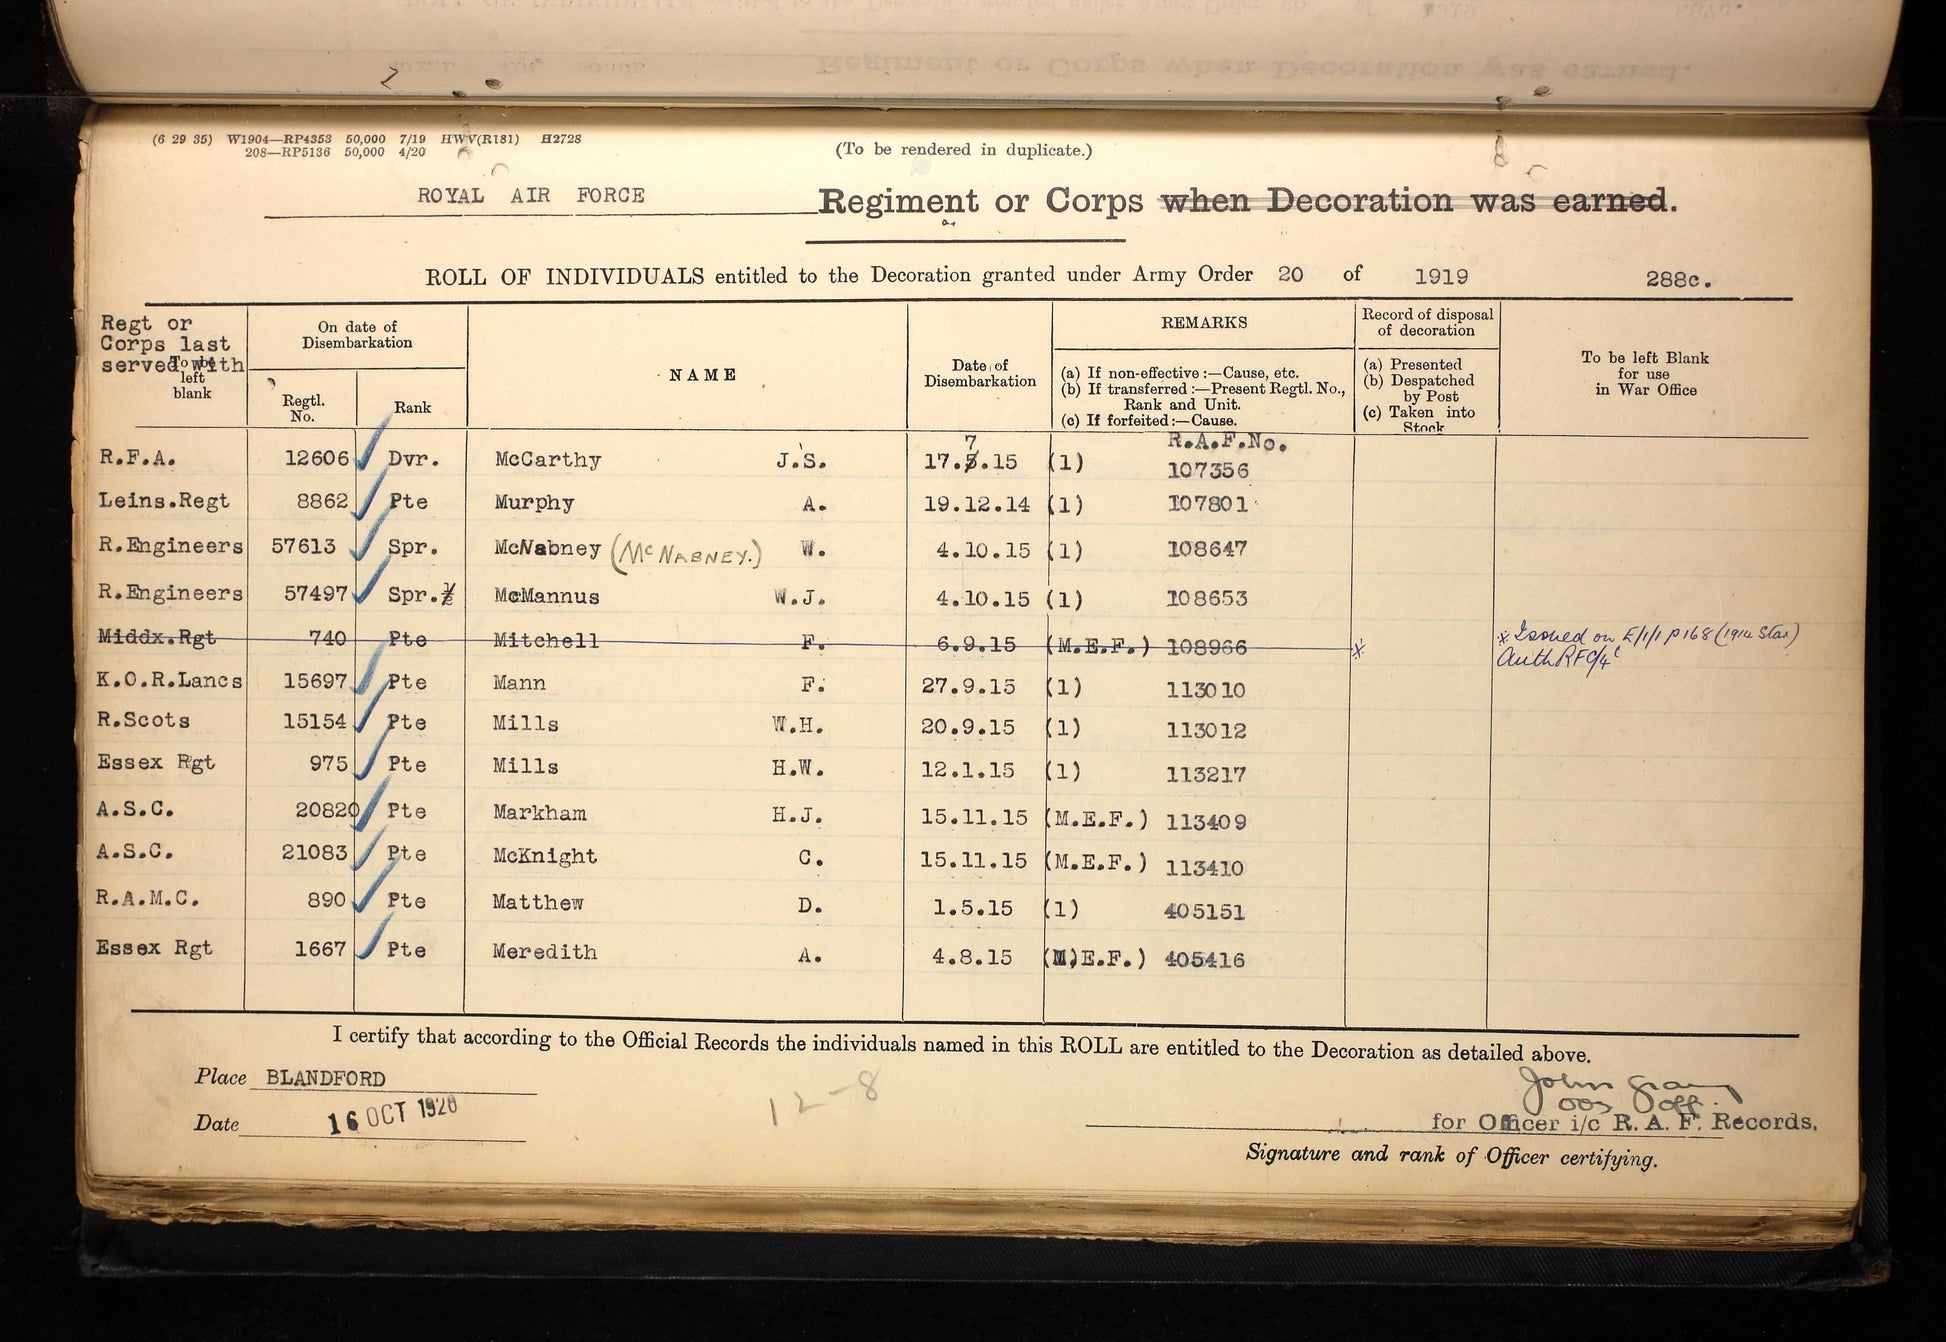 (6 29 35) W1904—RP4353 50,000 7/19 HWV(R181) H2728
208—RP5136 50,000 4/20
(To be rendered in duplicate.)
ROYAL AIR FORCE Regiment or Corps when Decoration was earned.
ROLL OF INDIVIDUALS entitled to the Decoration granted under Army Order 20 of 1919 288c.
Regt or Corps last served with
To be left blank
On date of Disembarkation
Regtl. No.
Rank
NAME
Date of Disembarkation
REMARKS
(a) If non-effective:—Cause, etc.
(b) If transferred:—Present Regtl. No., Rank and Unit.
(c) If forfeited:—Cause.
Record of disposal of decoration
(a) Presented
(b) Despatched by Post
(c) Taken into Stock
To be left Blank for use in War Office
R.A.F.No.
7
R.F.A. 12606 Dvr. McCarthy J.S. 17.3.15 (1) 107356
Leins.Regt 8862 Pte Murphy A. 19.12.14 (1) 107801
R.Engineers 57613 Spr. McNabney (McNABNEY.) W. 4.10.15 (1) 108647
R.Engineers 57497 Spr. McMannus W.J. 4.10.15 (1) 108653
Middx.Rgt 740 Pte Mitchell F. 6.9.15 (M.E.F.) 108966 x x Issued on E/1/1 p168 (1914 Star)
Auth RFC/4
K.O.R.Lancs 15697 Pte Mann F. 27.9.15 (1) 113010
R.Scots 15154 Pte Mills W.H. 20.9.15 (1) 113012
Essex Rgt 975 Pte Mills H.W. 12.1.15 (1) 113217
A.S.C. 20820 Pte Markham H.J. 15.11.15 (M.E.F.) 113409
A.S.C. 21083 Pte McKnight C. 15.11.15 (M.E.F.) 113410
R.A.M.C. 890 Pte Matthew D. 1.5.15 (1) 405151
Essex Rgt 1667 Pte Meredith A. 4.8.15 (M.E.F.) 405416
I certify that according to the Official Records the individuals named in this ROLL are entitled to the Decoration as detailed above.
Place BLANDFORD
12-8
John Gray
Date 16 OCT 1920
for Officer i/c R. A. F. Records.
Signature and rank of Officer certifying.